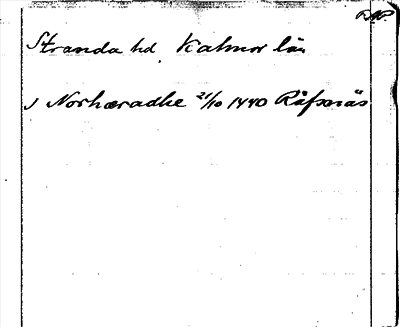 Stranda hd, Kalmar län
J Norhæradhe 21/10 1440 Räfsnäs